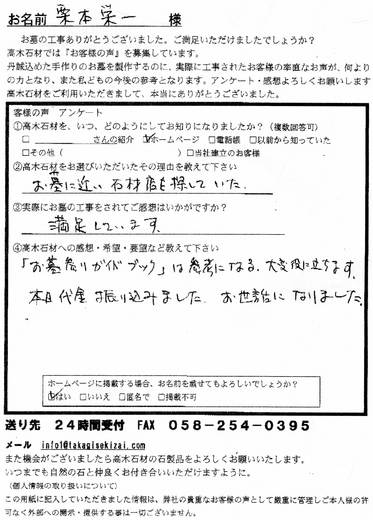 お名前 栗本栄一 様
お墓の工事ありがとうございました。ご満足いただけましたでしょうか?
高木石材では『お客様の声』を募集しています。
丹誠込めた手作りのお墓を製作するのに、実際に工事されたお客様の率直なお声が、何より
の力となり、また私どもの今後の参考となります。アンケート・感想よろしくお願いします
高木石材をご利用いただきまして、本当にありがとうございました。
客様の声 アンケート
①高木石材を、いつ、どのようにしてお知りになりましたか?(複数回答可)
□ さんの紹介 ☑ホームページ □電話帳 □以前から知っていた
□その他( ) □当社建立のお客様
②高木石材をお選びいただいたその理由を教えて下さい
お墓に近い石材店を探していた。
③実際にお墓の工事をされてご感想はいかがですか?
満足しています。
④高木石材への感想・希望・要望など教えて下さい
「お墓造りガイドブック」は参考になる、大変役に立ちます。
本日代金は振り込みました。お世話になりました。
ホームページに掲載する場合、お名前を載せてもよろしいでしょうか?
☑はい □いいえ □匿名で □掲載不可
送り先 24時間受付 FAX 058-254-0395
メール info@takagisekizai.com
また機会がございましたら高木石材の石製品をよろしくお願いいたします。
いつまでも自然の石と仲良くお付き合いいただけますように。
(個人情報の取り扱いについて)
この用紙に記入していただきました情報は、弊社の貴重なお客様の声として厳重に管理しご本人様の許
可なく外部への開示・提供する事は一切ございません。